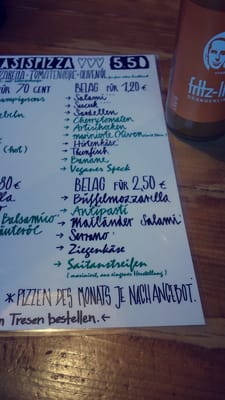 BASISPIZZA ♡♡♡ 5.50
ZARELLA · TOMATENWÜRFEL · OLIVENÖL
FÜR 70 CENT
BELAG FÜR 1,20 €
hampignons
→ Salami
→ Sucuk
→ Sardellen
→ Cherrytomaten
→ Artischocken
→ marinierte Oliven
→ Hirtenkäse
(hot)
→ Thunfisch
→ Banane
→ Veganer Speck
80 €
BELAG FÜR 2,50 €
→ Büffelmozzarella
→ Antipasti
Balsamico
→ Mailänder Salami
äuteröl
→ Serrano
→ Ziegenkäse
→ Saitanstreifen
(mariniert, aus eigener Herstellung)
* PIZZEN DES MONATS JE NACH ANGEBOT.
m Tresen bestellen. ←
fritz-li